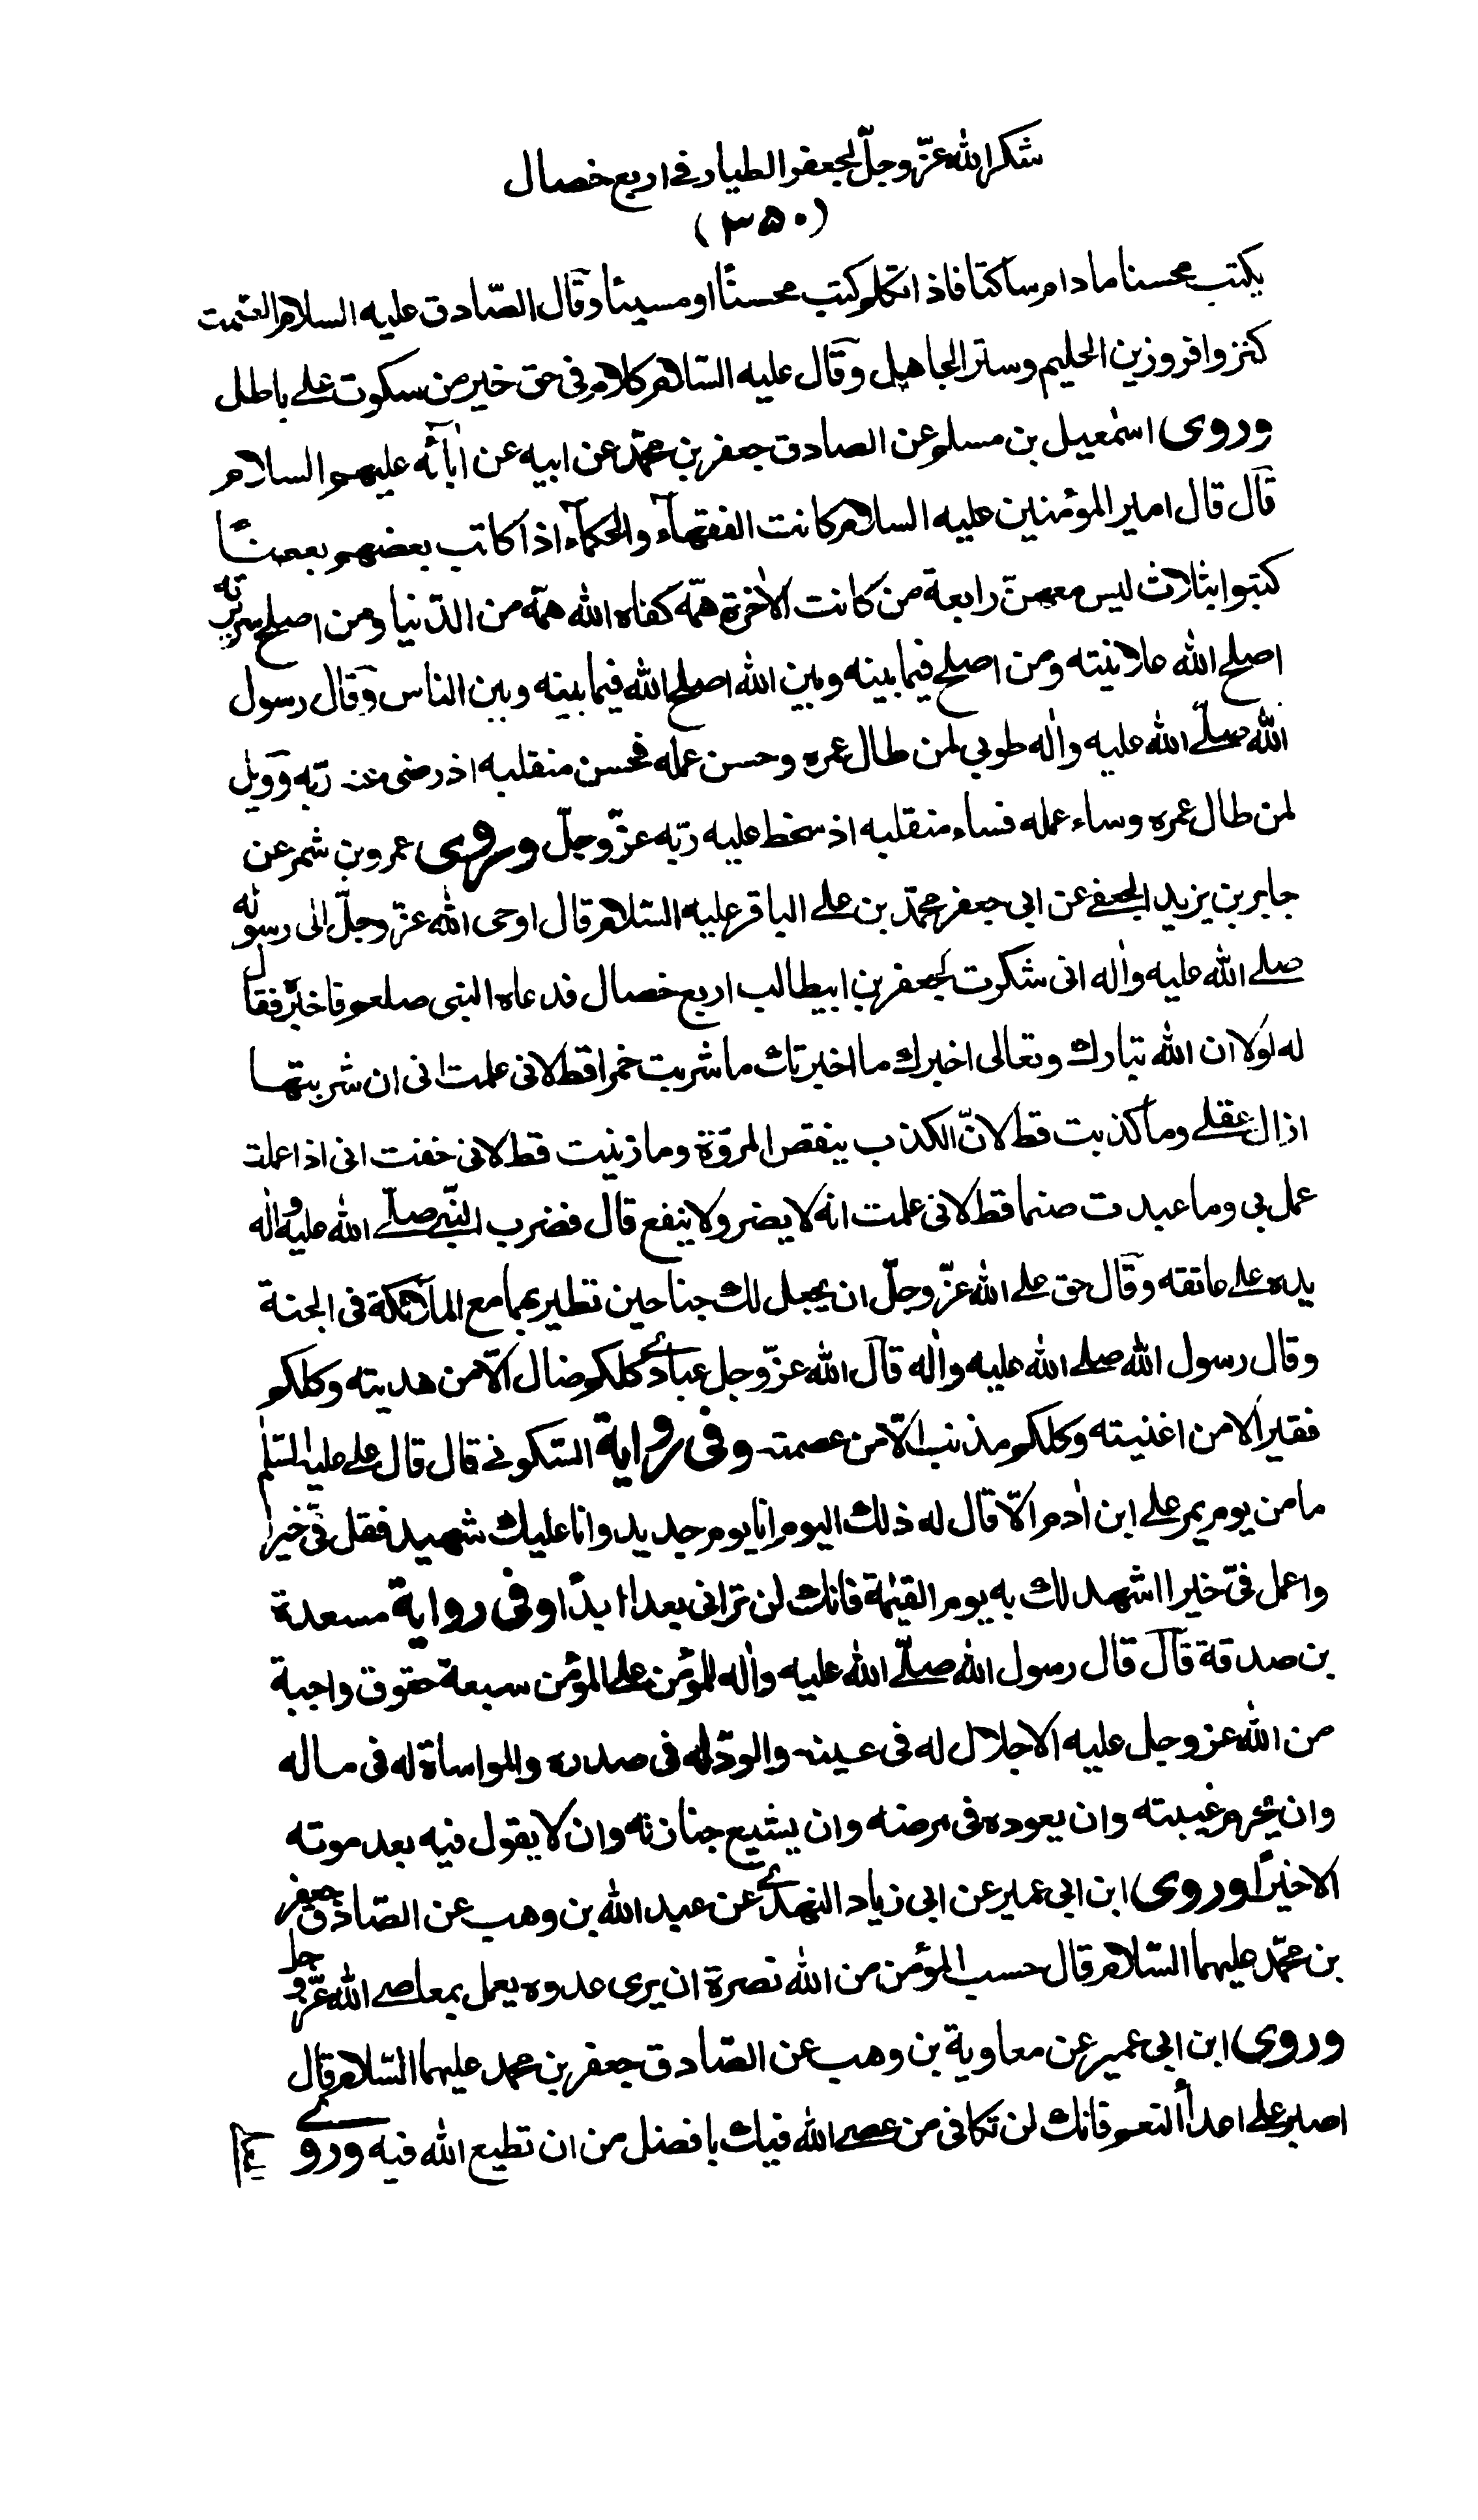 شكر الله عزّ وجلّ لجعفر الطيار فى اربع خصال
(۳۵۰)
يكتب محسنا مادام ساكتا فاذا تكلم كتب محسنًا او مسيئا وقال الصّادق عليه السلام الصّمت
كنز وافر وزين الحليم وستر الجاهل وقال عليه السّلام كلام فى حق خير من سكوت على باطل
وروى اسمٰعيل بن مسلم عن الصادق جعفر بن محمّد عن ابيه عن اٰبائه عليهم السلام
قال قال امير المؤمنين عليه السلام كانت الفقهاء والحكماء اذا كاتب بعضهم بعضًا
كتبوا بثلاث ليس معهنّ رابعة من كانت الاٰخرة همّه كفاه الله همّه من الدّنيا ومن اصلح سريرته
اصلح الله علانيته ومن اصلح فيما بينه وبين الله اصلح الله فيما بينه وبين الناس وقال رسول
الله صلّے الله عليه واٰله طوبى لمن طال عمره وحسن عمله فحسن منقلبه اذ رضى عنه ربّه وويل
لمن طال عمره وساء عمله فساء منقلبه اذ سخط عليه ربّه عزّ وجلّ وروى عمرو بن شمر عن
جابر بن يزيد الجعفے عن ابى جعفر محمّد بن علے الباقر عليه السّلام قال اوحى الله عزّ وجلّ الٰى رسوله
صلے الله عليه واٰله انى شكرت لجعفر بن ابيطالب اربع خصال فدعاه النبى صلعم فاخبره فقال
له لولا ان الله تبارك وتعالى اخبرك ما اخبرتك ما شربت خمرا قط لانى علمت انى ان شربتها
ازال عقلے وما كذبت قط لانّ الكذب ينقص المروّة وما زنيت قط لانى خفت انى اذا عملت
عمل بى وما عبدت صنما قط لانى علمت انه لا يضر ولا ينفع قال فضرب النّبے صلّے الله عليه واٰله
يده علے عاتقه وقال حق علے الله عزّ وجلّ ان يجعل لك جناحين تطير بهما مع الملائكة فى الجنة
وقال رسول الله صلے الله عليه واٰله قال الله عزّ وجل عبادے كلكم ضال الّا من هديته وكلكم
فقير الا من اغنيته وكلكم مذنب الّا من عصمته وفى رواية السّكونے قال قال علے عليه السّلم
ما من يوم يمر علے ابن اٰدم الّا قال له ذلك اليوم انا يوم جديد وانا عليك شهيد فقل فىّ خيرا
واعمل فىّ خيرا اشهد لك به يوم القيٰمة فانك لن ترانى بعدها ابدًا وفى رواية مسعدة
بن صدقة قال قال رسول الله صلّے الله عليه واٰله للمؤمن على المؤمن سبعة حقوق واجبة
من الله عز وجل عليه الاجلال له فى عينه والودّ له فى صدره والمواساة له فى ماله
وان يحرم غيبته وان يعوده فى مرضه وان يشيع جنازته وان لا يقول فيه بعد موته
الا خيرًا وروى ابن ابى عمير عن ابى زياد النهدے عن عبد الله بن وهب عن الصّادق جعفر
بن محمّد عليهما السّلام قال حسب المؤمن من الله نصرة ان يرى عدوه يعمل بمعاصے الله عزّ وجل
وروى ابن ابى عمير عن معاوية بن وهب عن الصّادق جعفر بن محمد عليهما السّلام قال
اصبر علے اعداء النعم فانك لن تكافى من عصے الله فيك بافضل من ان تطيع الله فيه وروے